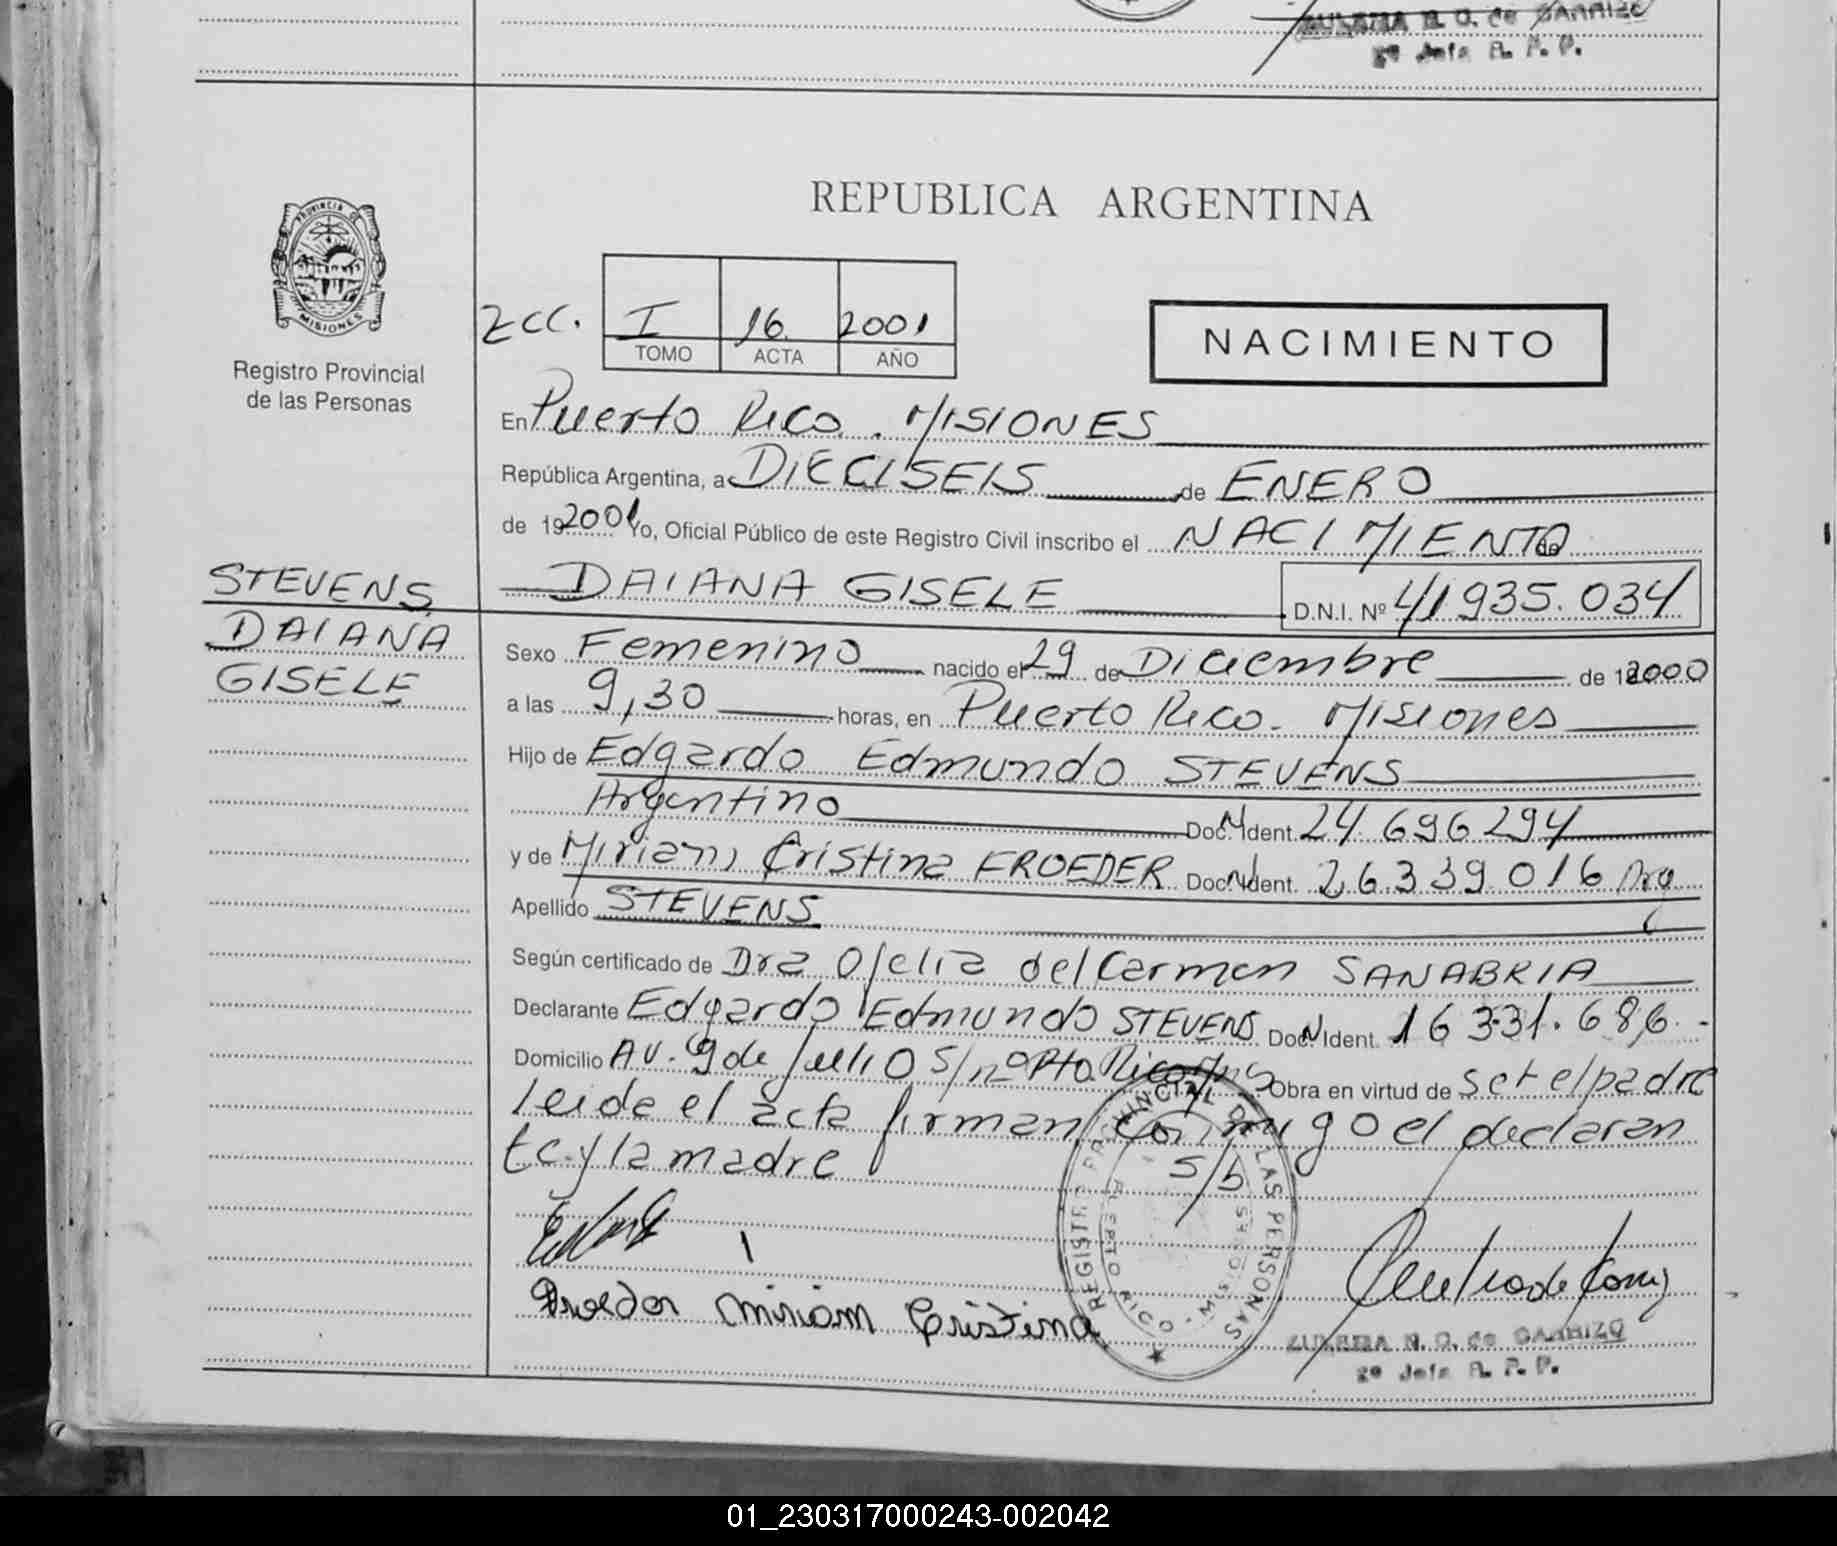 ZULEMA N. O. de CARRIZO
2º Jefe R. P. P.
REPUBLICA ARGENTINA
PROVINCIA DE
MISIONES
Registro Provincial
de las Personas
zcc.
I 16 2001
TOMO ACTA AÑO
NACIMIENTO
En Puerto Rico. MISIONES
República Argentina, a DIECISEIS de ENERO
de 19 2001 Yo, Oficial Público de este Registro Civil inscribo el NACIMIENTO de
STEVENS
DAIANA
GISELE
DAIANA GISELE D.N.I. Nº 41935.034
Sexo Femenino nacido el 29 de Diciembre de 1 2000
a las 9,30 horas, en Puerto Rico. Misiones
Hijo de Edgardo Edmundo STEVENS
Argentino Doc. N Ident. 24.696294
y de Miriam Cristina FROEDER Doc. N Ident. 26.339.016 Arg
Apellido STEVENS
Según certificado de Dra Ofelia del Carmen SANABRIA
Declarante Edgardo Edmundo STEVENS Doc. N Ident. 16 331.686.-
Domicilio AV. 9 de Julio S/nº Pto Rico Mns Obra en virtud de ser el padre
leida el acta firman conmigo el declaran
te y la madre
S/b
REGISTRO PROVINCIAL DE LAS PERSONAS
PUERTO RICO - MISIONES
Froeder Miriam Cristina
ZULEMA N. O. de CARRIZO
2º Jefe R. P. P.
01_230317000243-002042